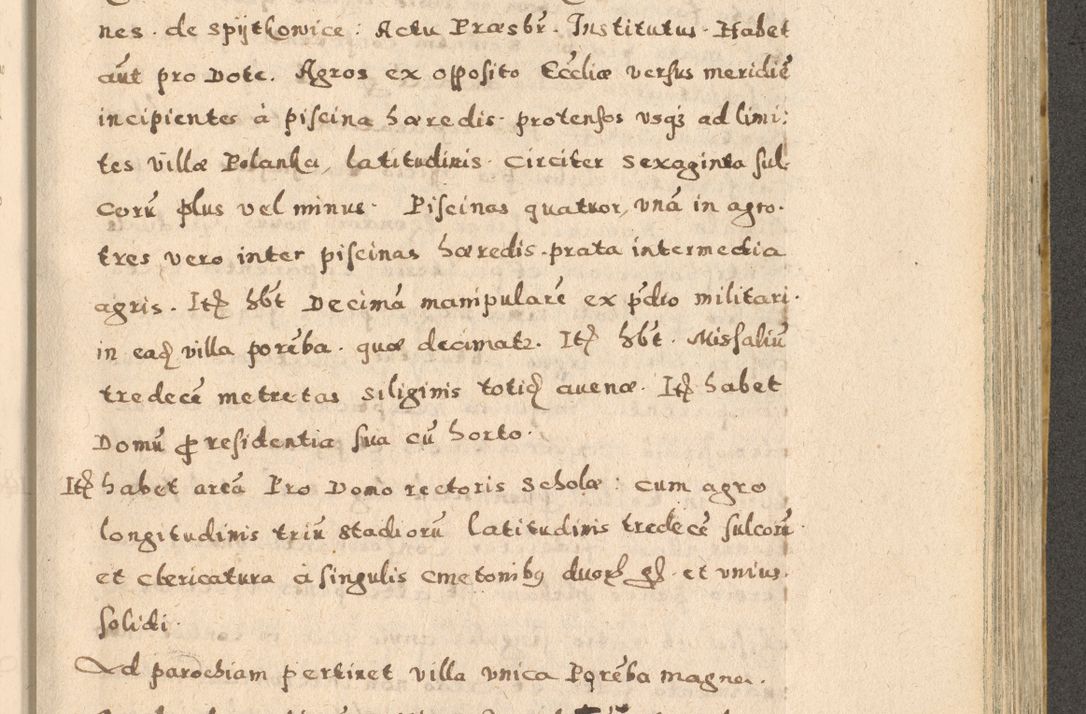 nes. de Spÿtkowice: Actu Præsbr̃. Institutus. Habet
aūt pro Dote. Agros ex opposito Eccliæ versus meridiē
incipientes à piscina hæredis. protensos vsqꝫ ad limi:
tes villæ Polanka, latitudinis. Circiter Sexaginta sul
corū plus vel minus. Piscinas quatuor, vnā in agro.
tres vero inter piscinas hæredis. prata intermedia
agris. Itē hb̃t Decimā manipularē ex p̃dio militari.
in eadē villa porēba. quæ decimatꝛ. Itē hb̃t. Missaliū
tredecē metretas Siliginis totidē auenæ. Itē habet
Domū ꝓ residentia sua cū horto.
Itē habet areā Pro Domo rectoris Scholæ: cum agro
longitudinis triū Stadiorū latitudinis tredecē sulcorū.
et Clericatura à singulis Cmetonibꝰ duorū gr̃. et vnius.
solidi.
Ad parochiam pertinet villa vnica Porēba magna.